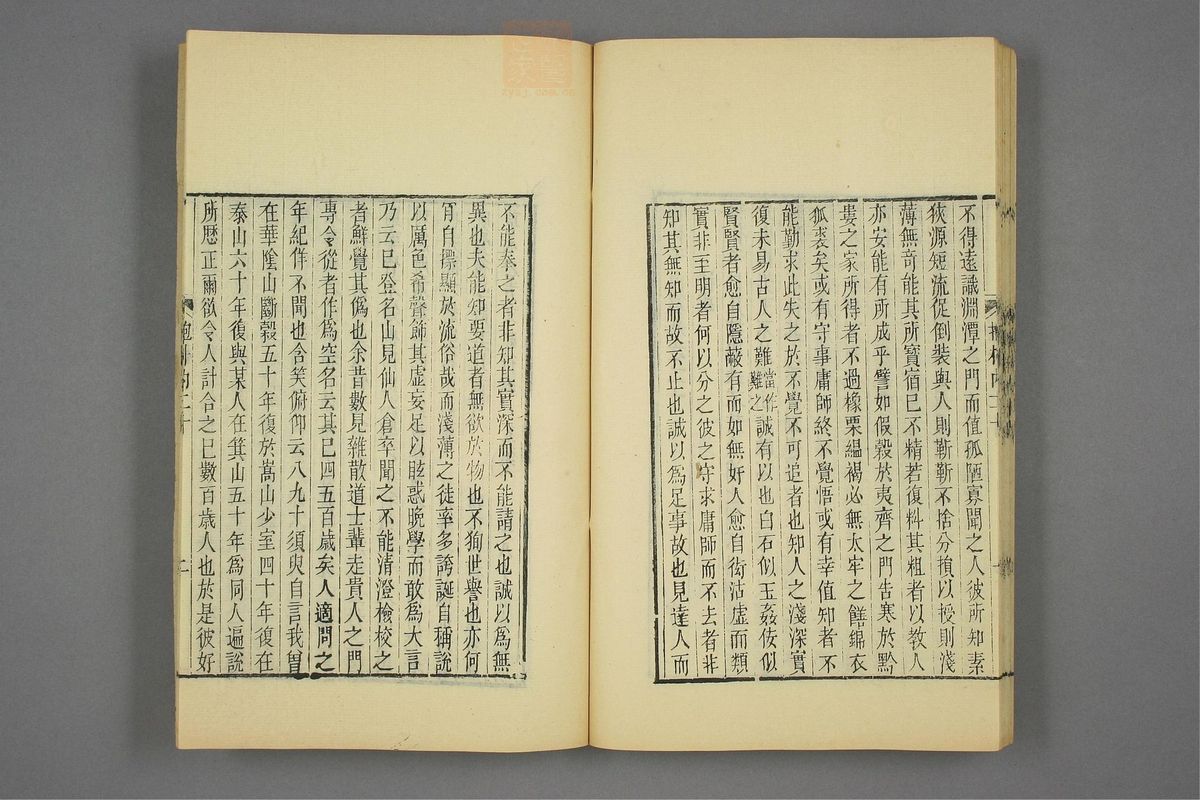 不得遠識淵潭之門而值孤陋寡聞之人彼所知素
狹源短流促倒裝與人則靳靳不捨分損以授則淺
薄無奇能其所寶宿已不精若復料其粗者以教人
亦安能有所成乎譬如假穀於夷齊之門告寒於黔
婁之家所得者不過橡栗縕褐必無太牢之饍錦衣
狐裘矣或有守事庸師終不覺悟或有幸值知者不
能勤求此失之於不覺不可追者也知人之淺深實
復未易古人之難當作難之誠有以也白石似玉姦佞似
賢賢者愈自隱蔽有而如無奸人愈自衒沽虛而類
實非至明者何以分之彼之守求庸師而不去者非
知其無知而故不止也誠以爲足事故也見達人而
不能奉之者非知其實深而不能請之也誠以爲無
異也夫能知要道者無欲於物也不狥世譽也亦何
肯自摽顯於流俗哉而淺薄之徒率多誇誕自稱說
以厲色希聲飾其虛妄足以眩惑晚學而敢爲大言
乃云已登名山見仙人倉卒聞之不能清澄檢校之
者鮮覺其僞也余昔數見雜散道士輩走貴人之門
專令從者作爲空名云其已四五百歲矣人適問之
年紀佯不聞也含笑俯仰云八九十須臾自言我曾
在華陰山斷穀五十年復於嵩山少室四十年復在
泰山六十年復與某人在箕山五十年爲同人遍說
所歷正爾欲令人計合之已數百歲人也於是彼好
二